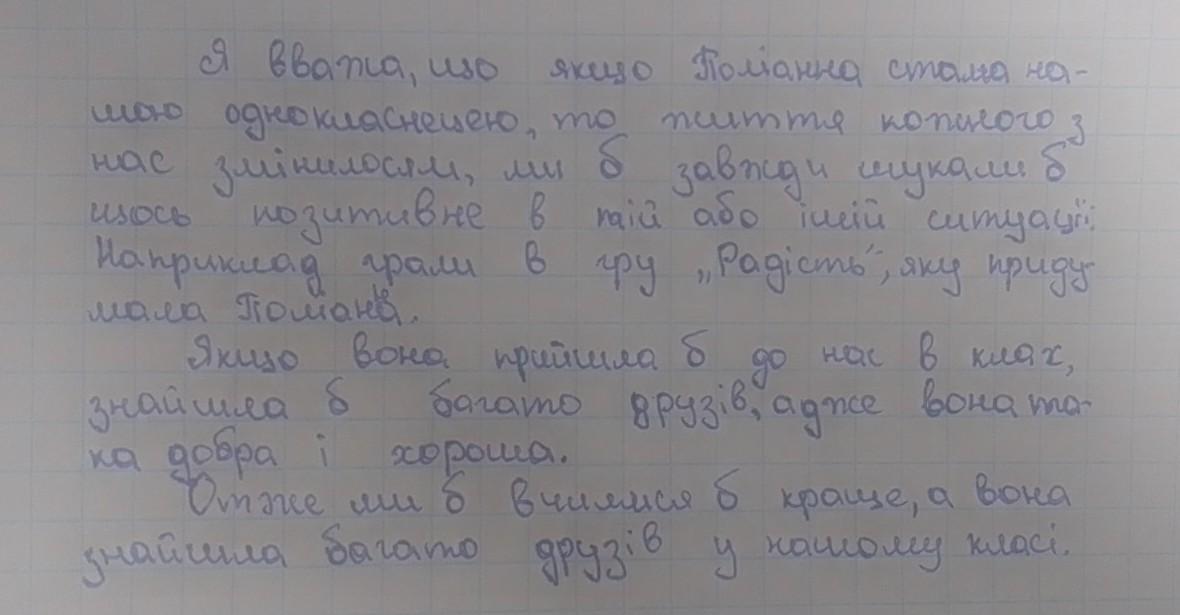 Я вважа, що якщо Поліанна стала на-
шою однокласнецею, то життя кожного з
нас змінилосям, ми б завжди шукали б
щось позитивне в тій або іншій ситуації.
Наприклад грали в гру „Радість", яку приду
мала Поліанна.
Якщо вона прийшла б до нас в клах,
знайшла б багато друзів, адже вона та-
ка добра і хороша.
Отже ми б вчилися б краще, а вона
знайшла багато друзів у нашому класі.